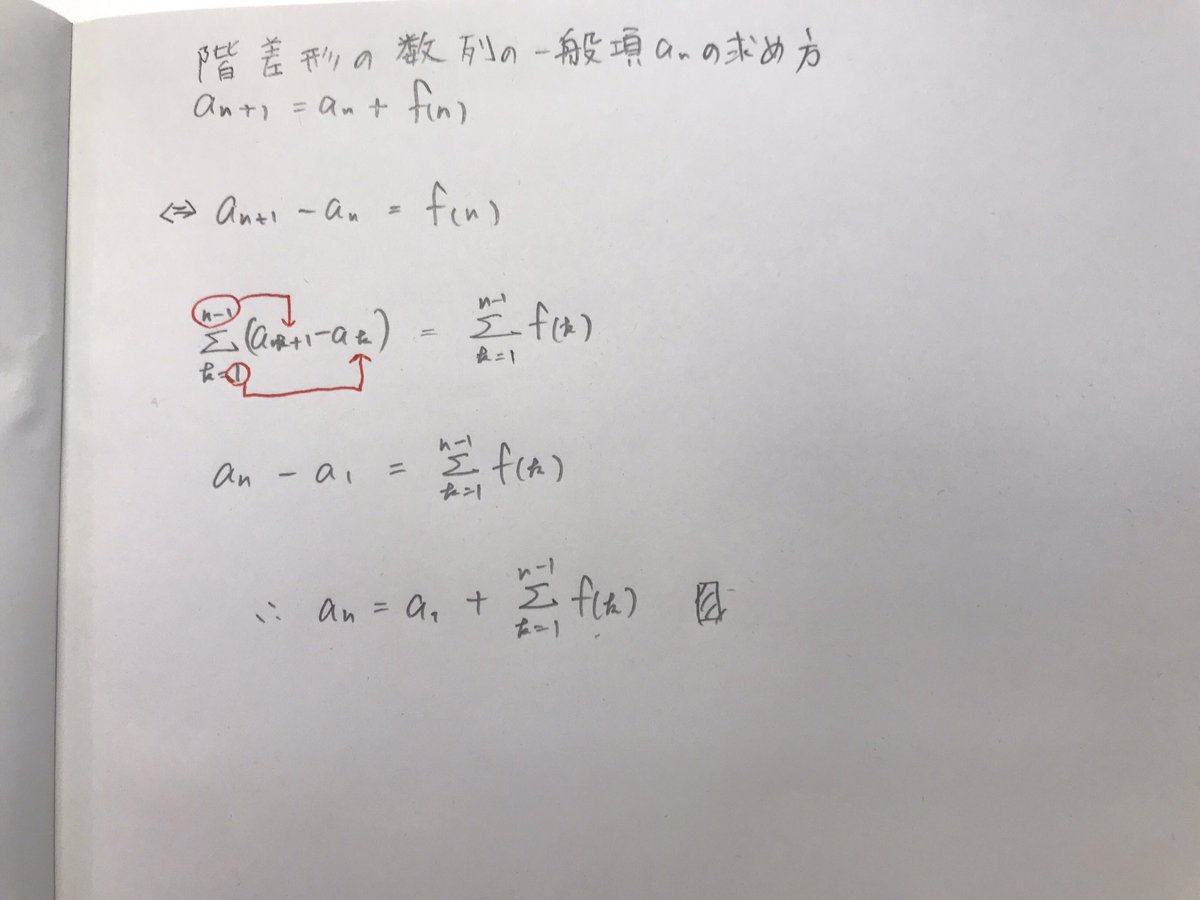 階差形の数列の一般項 aₙ の求め方
aₙ₊₁ = aₙ + f(n)
⇔ aₙ₊₁ − aₙ = f(n)
∑_{k=1}^{n−1} (aₖ₊₁ − aₖ) = ∑_{k=1}^{n−1} f(k)
aₙ − a₁ = ∑_{k=1}^{n−1} f(k)
∴ aₙ = a₁ + ∑_{k=1}^{n−1} f(k)